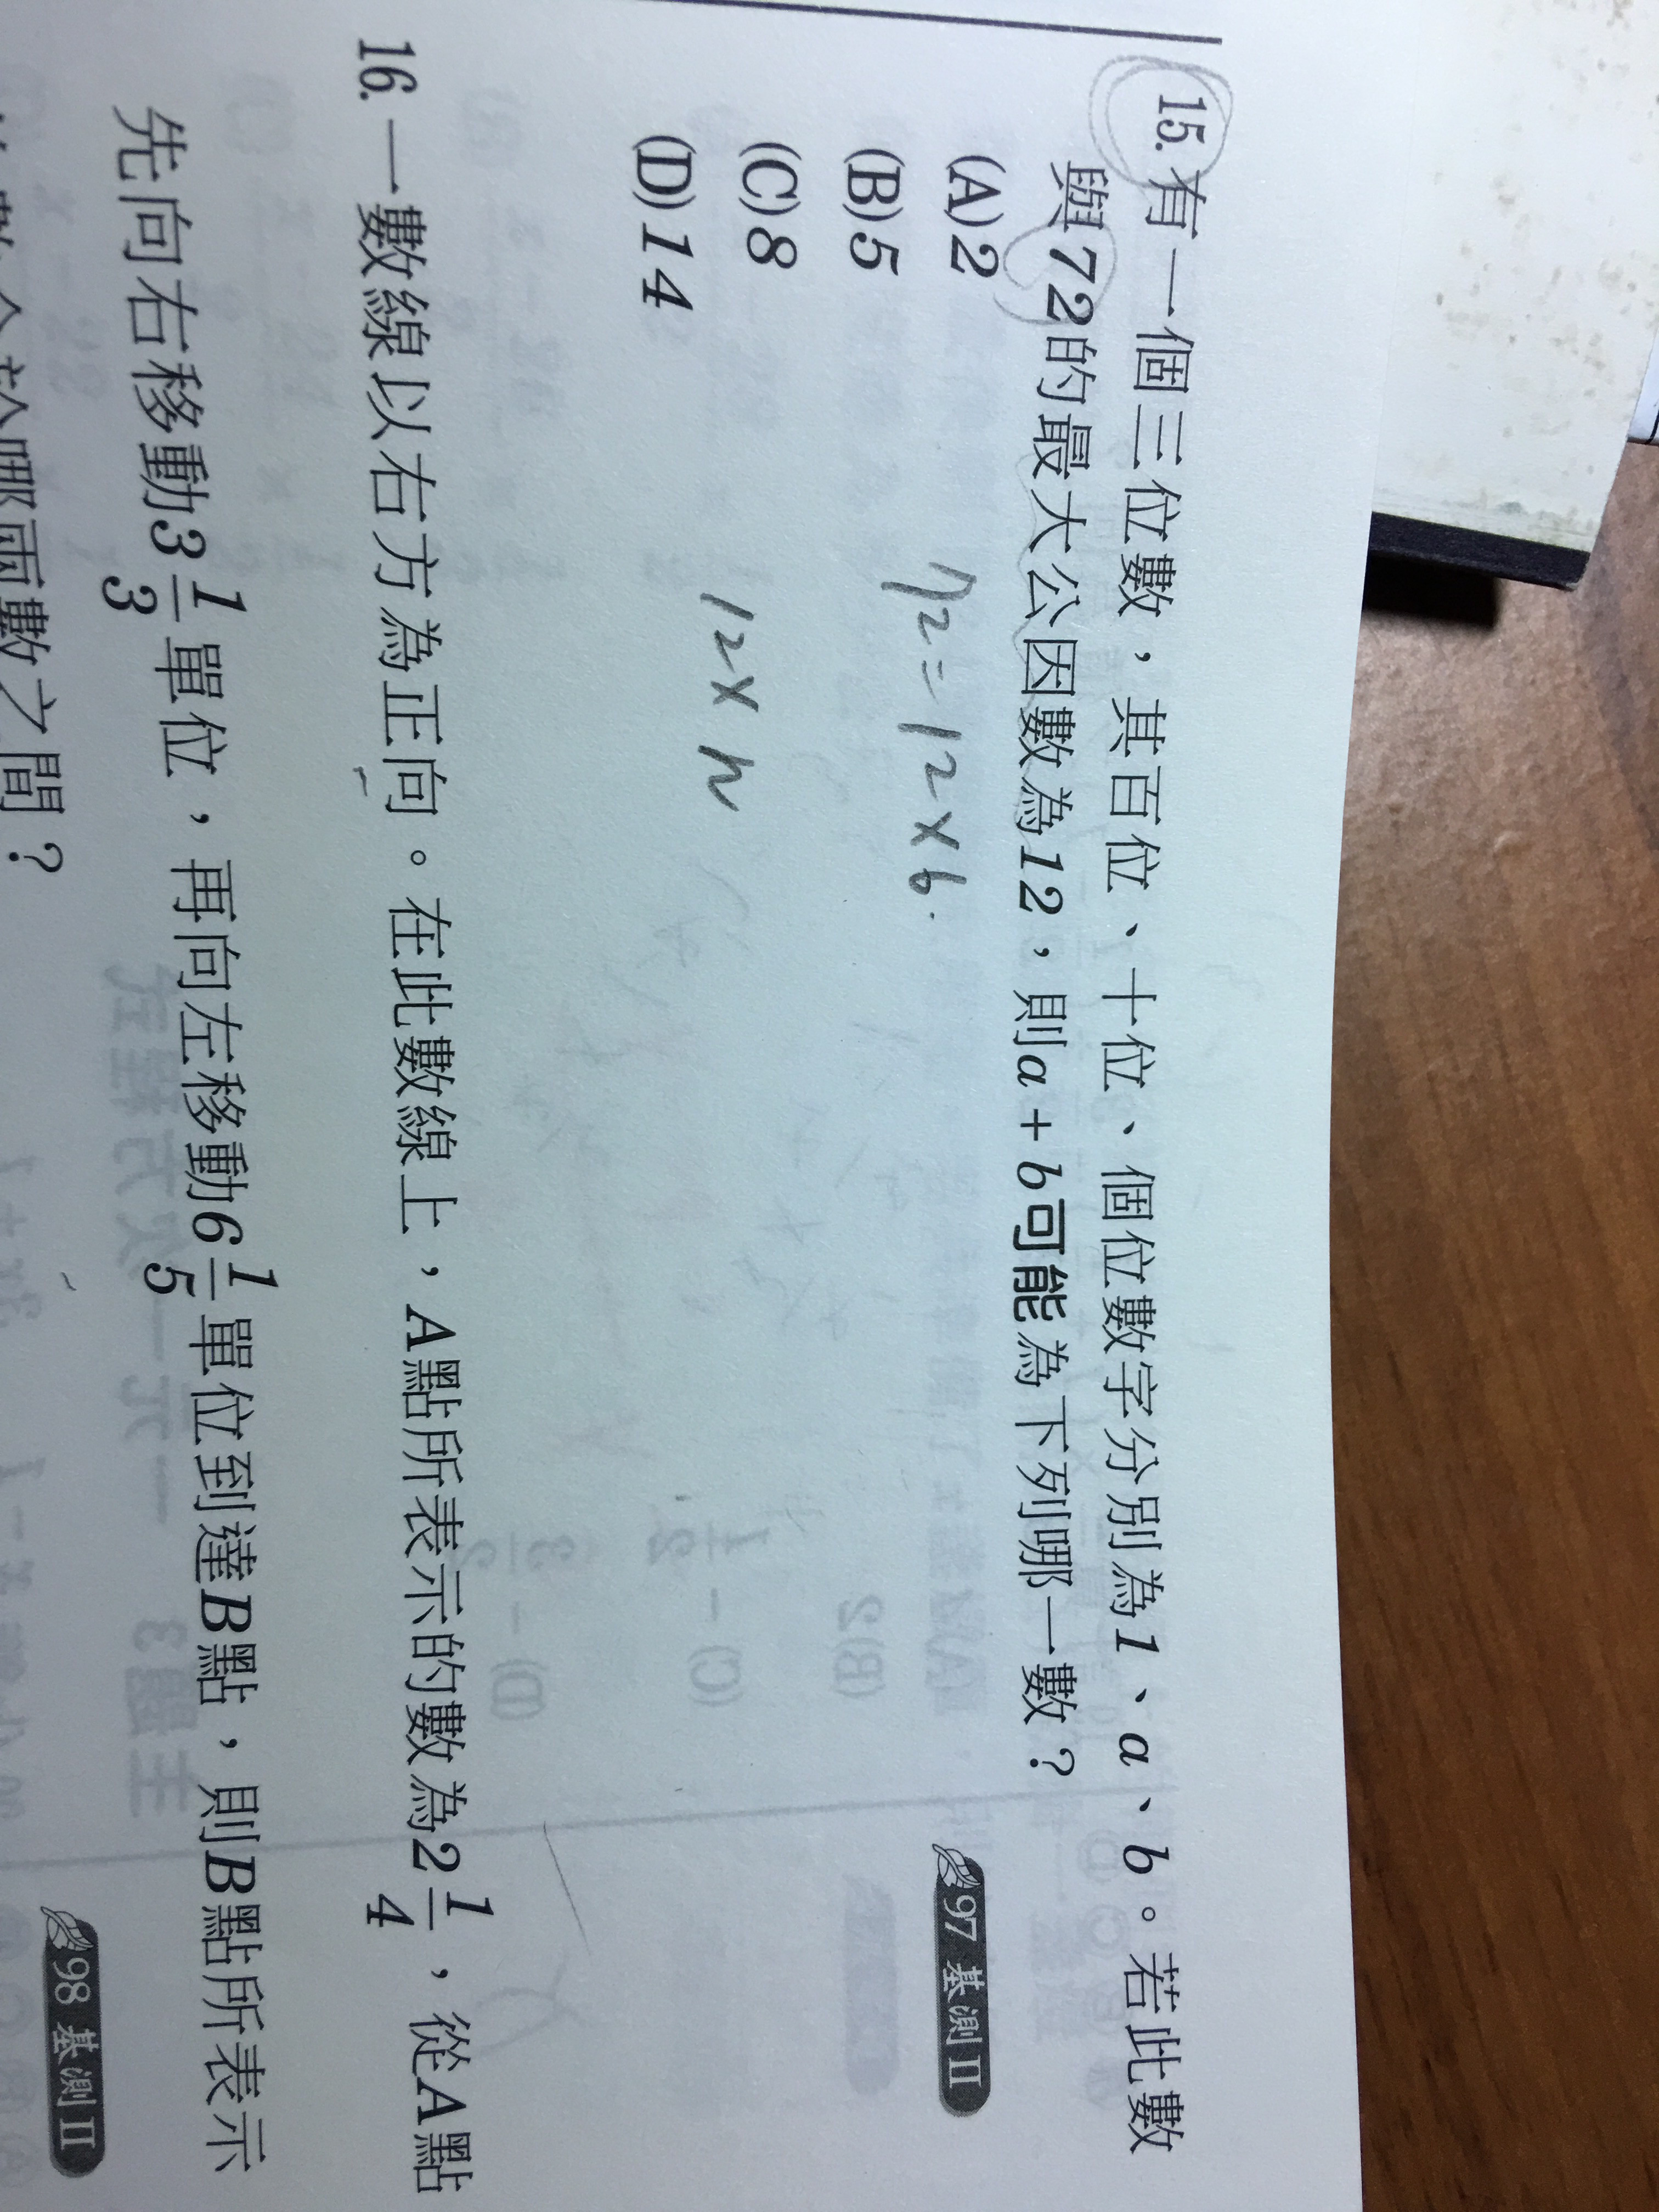 15. 有一個三位數，其百位、十位、個位數字分別為1、a、b。若此數
與72的最大公因數為12，則a+b可能為下列哪一數？
97 基測 II
(A)2
(B)5
(C)8
(D)14
72=12×6.
12×n
16. 一數線以右方為正向。在此數線上，A點所表示的數為2 1/4，從A點
先向右移動3 1/3單位，再向左移動6 1/5單位到達B點，則B點所表示
哪兩數之間？
98 基測 II